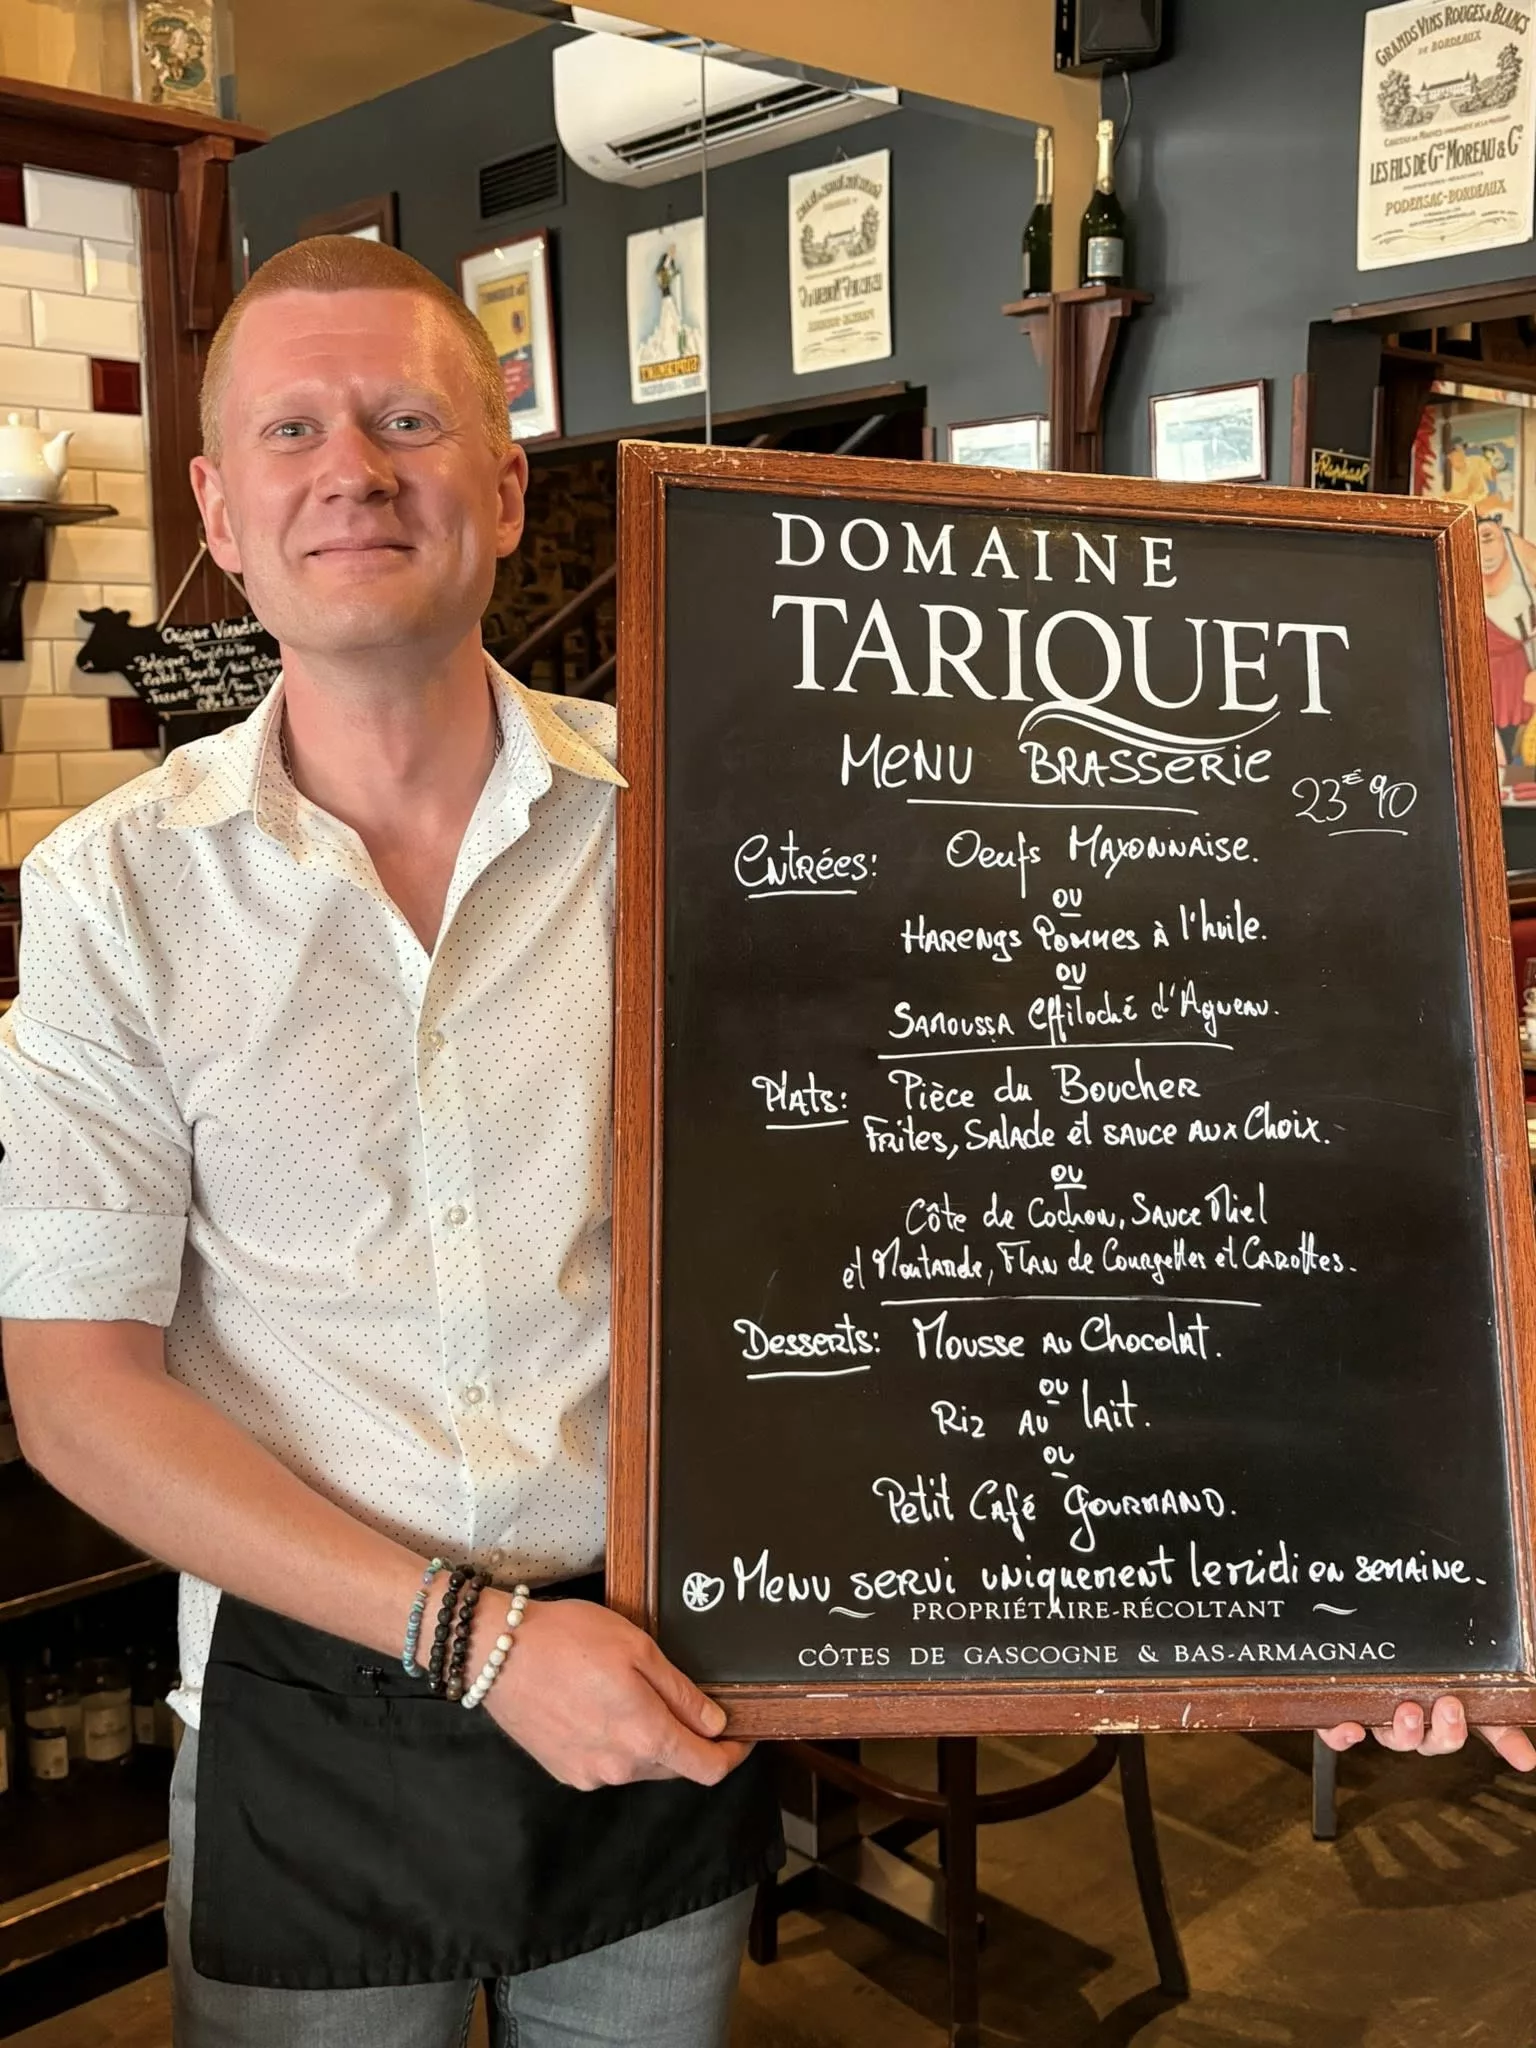 GRANDS VINS ROUGES & BLANCS
DE BORDEAUX
LES FILS DE Gges MOREAU & Cie
PODENSAC-BORDEAUX
Raphael
Origine Viandes
DOMAINE
TARIQUET
MENU BRASSERIE
23€90
Entrées: Oeufs Mayonnaise.
ou
Harengs Pommes à l'huile.
ou
Samoussa Effiloché d'Agneau.
Plats: Pièce du Boucher
Frites, Salade et sauce aux Choix.
ou
Côte de Cochon, Sauce Miel
et Moutarde, Flan de Courgettes et Carottes.
Desserts: Mousse au Chocolat.
ou
Riz au lait.
ou
Petit Café Gourmand.
Menu servi uniquement le midi en semaine.
PROPRIÉTAIRE-RÉCOLTANT
CÔTES DE GASCOGNE & BAS-ARMAGNAC